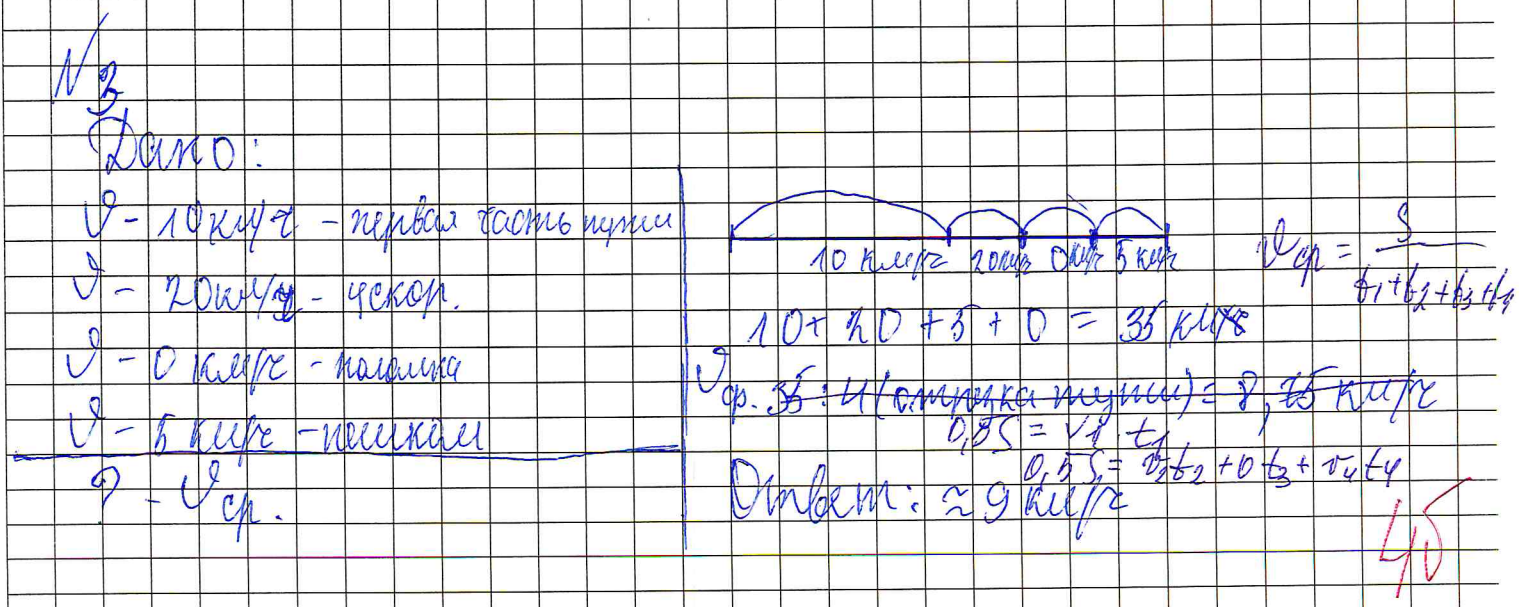 N 3
Дано:
V - 10 км/ч - первая часть пути
V - 20 км/ч - ускор.
V - 0 км/ч - поломка
V - 5 км/ч - пешком
? - Vср.
10 км/ч 20 км/ч 0 км/ч 5 км/ч
Vср = S / t1 + t2 + t3 + t4
10 + 20 + 5 + 0 = 35 км/ч
Vср. 35 : 4 (отрезка пути) = 8,75 км/ч
0,5S = V1 t1
0,5S = V2t2 + 0 t3 + V4t4
Ответ: ≈ 9 км/ч
4б